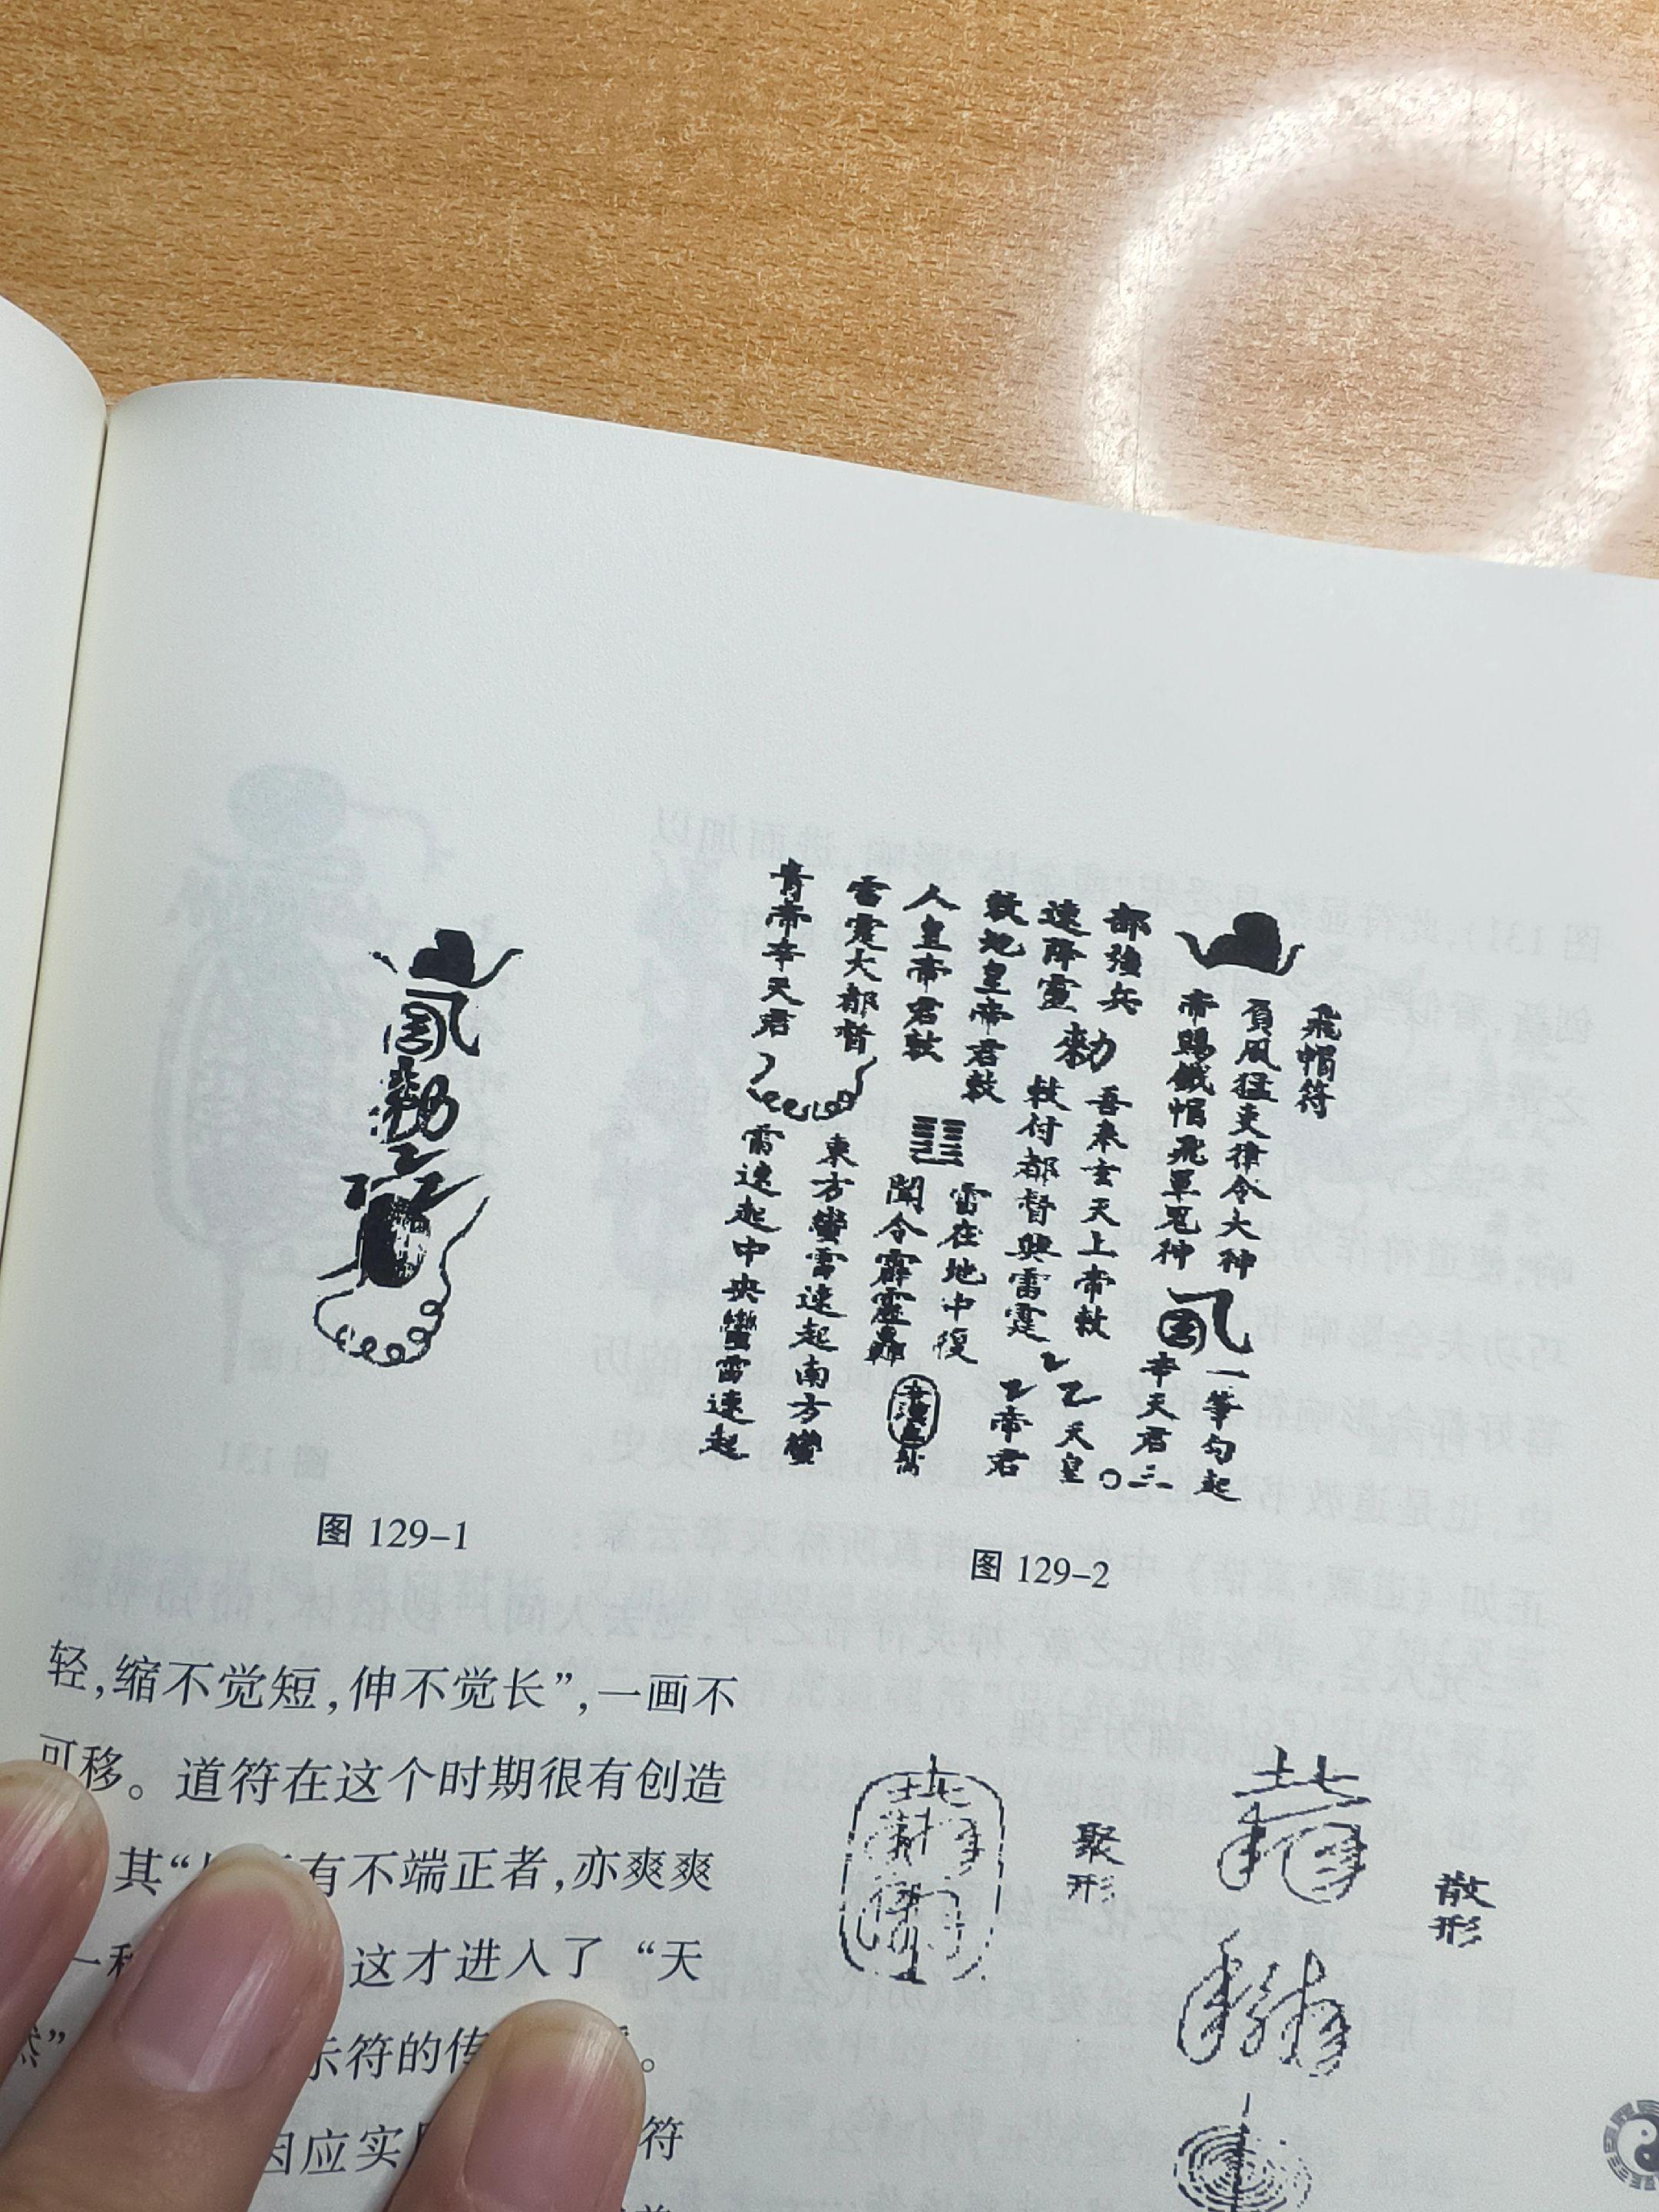 飛帽符
負風猛吏律令大神
帝賜鐵帽飛罩冤神
一筆勾起
辛天君三
部強兵
吾奉玄天上帝敕
速降靈
敕
敕付都督興雷霆
天皇
帝君
敕地皇帝君敕
雷在地中復
人皇帝君敕
聞令霹靂轟
雷霆大都督
東方蠻雷速起南方蠻
青帝辛天君
雷速起中央蠻雷速起
图 129-1
图 129-2
轻,缩不觉短,伸不觉长”,一画不
可移。道符在这个时期很有创造
其“ 有不端正者,亦爽爽
一 这才进入了“天
” 示符的传 。
因应实 符
聚形
散形